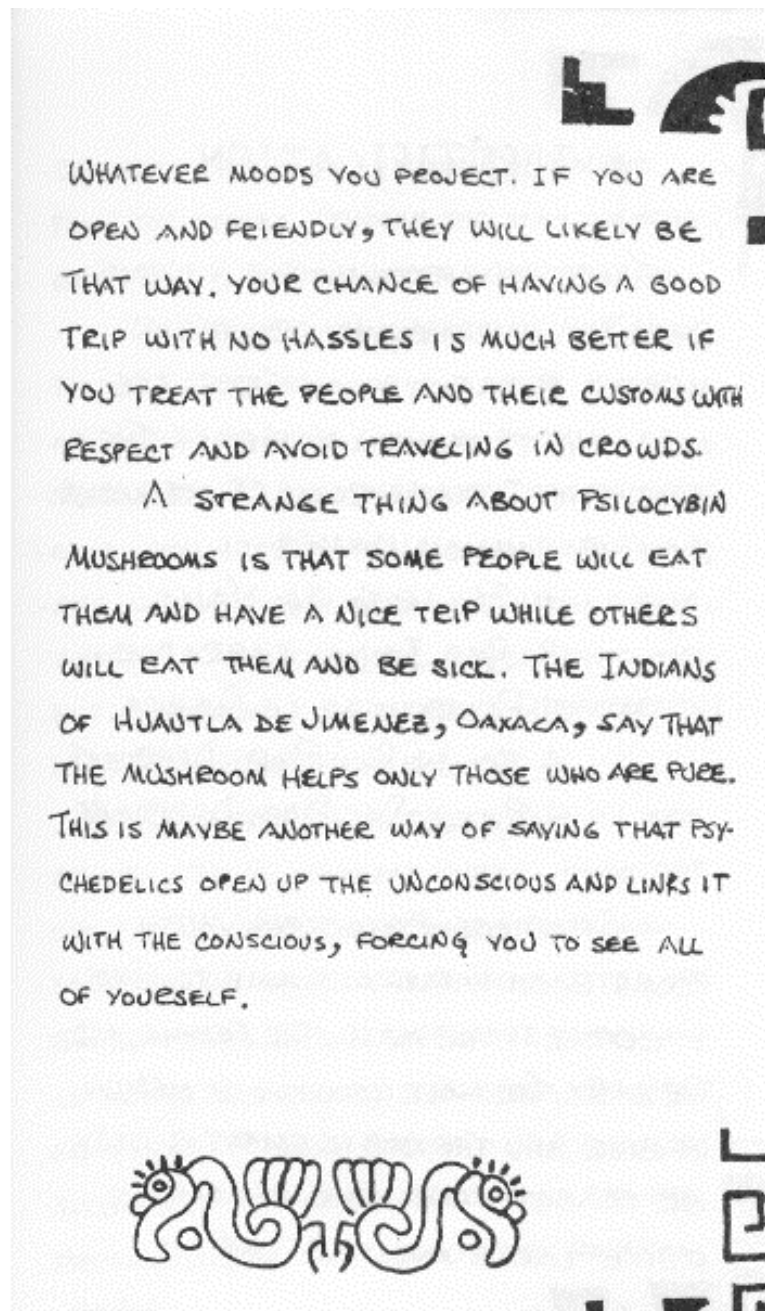 WHATEVER MOODS YOU PROJECT. IF YOU ARE
OPEN AND FRIENDLY, THEY WILL LIKELY BE
THAT WAY. YOUR CHANCE OF HAVING A GOOD
TRIP WITH NO HASSLES IS MUCH BETTER IF
YOU TREAT THE PEOPLE AND THEIR CUSTOMS WITH
RESPECT AND AVOID TRAVELING IN CROWDS.
A STRANGE THING ABOUT PSILOCYBIN
MUSHROOMS IS THAT SOME PEOPLE WILL EAT
THEM AND HAVE A NICE TRIP WHILE OTHERS
WILL EAT THEM AND BE SICK. THE INDIANS
OF HUAUTLA DE JIMENEZ, OAXACA, SAY THAT
THE MUSHROOM HELPS ONLY THOSE WHO ARE PURE.
THIS IS MAYBE ANOTHER WAY OF SAYING THAT PSY-
CHEDELICS OPEN UP THE UNCONSCIOUS AND LINKS IT
WITH THE CONSCIOUS, FORCING YOU TO SEE ALL
OF YOURSELF.